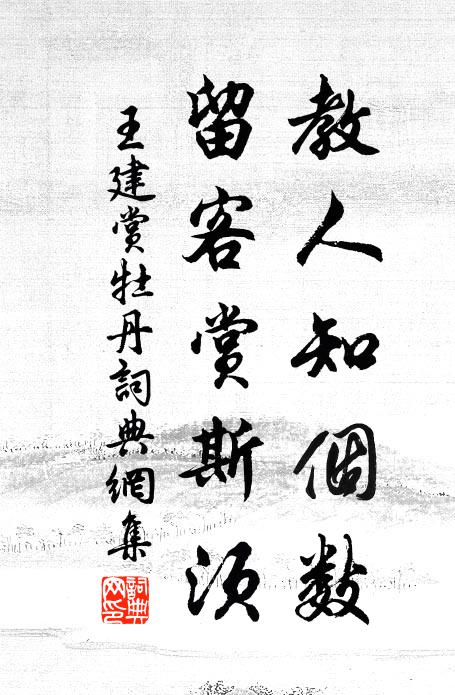 教人知個數
留客賞斯須
王建賞牡丹詞典網集
詞典
网印